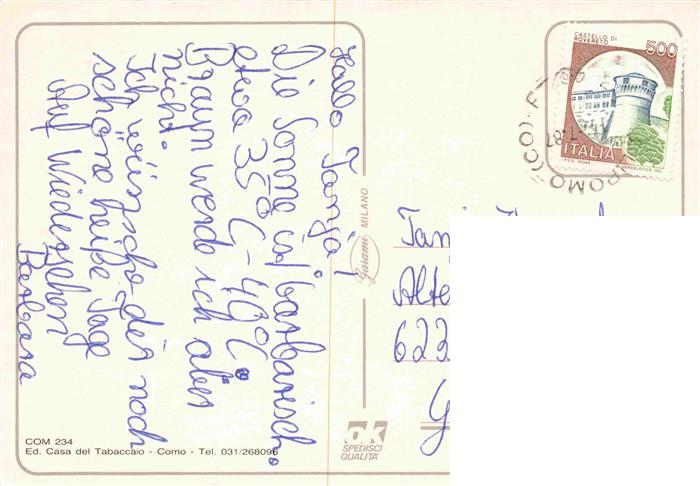 Hallo Tanja,
Die Sonne ist barbarisch.
etwa 35° C - 40° C.
Braun werde ich aber
nicht.
Ich wünsche dir noch
schöne heiße Tage
Auf Wiedersehen
Barbara
COM 234
Ed. Casa del Tabaccaio - Como - Tel. 031/268096
Garami MILANO
ok
SPEDISCI
QUALITA'
CASTELLO DI
ROVERETO
500
ITALIA
COMO (CO)
Alte
622
G